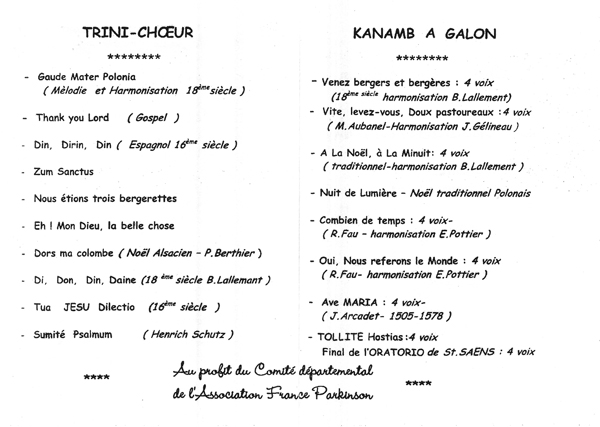 TRINI-CHŒUR
********
- Gaude Mater Polonia
( Mèlodie et Harmonisation 18ème siècle )
- Thank you Lord ( Gospel )
- Din, Dirin, Din ( Espagnol 16ème siècle )
- Zum Sanctus
- Nous étions trois bergerettes
- Eh ! Mon Dieu, la belle chose
- Dors ma colombe ( Noël Alsacien - P.Berthier )
- Di, Don, Din, Daine (18 ème siècle B.Lallemant )
- Tua JESU Dilectio (16ème siècle )
- Sumité Psalmum ( Henrich Schutz )
****
KANAMB A GALON
********
- Venez bergers et bergères : 4 voix
(18ème siècle harmonisation B.Lallement)
- Vite, levez-vous, Doux pastoureaux : 4 voix
( M.Aubanel-Harmonisation J.Gélineau )
- A La Noël, à La Minuit: 4 voix
( traditionnel-harmonisation B.Lallement )
- Nuit de Lumière - Noël traditionnel Polonais
- Combien de temps : 4 voix-
( R.Fau - harmonisation E.Pottier )
- Oui, Nous referons le Monde : 4 voix
( R.Fau- harmonisation E.Pottier )
- Ave MARIA : 4 voix-
( J.Arcadet- 1505-1578 )
- TOLLITE Hostias:4 voix
Final de l'ORATORIO de St.SAENS : 4 voix
****
Au profit du Comité départemental
de l'Association France Parkinson